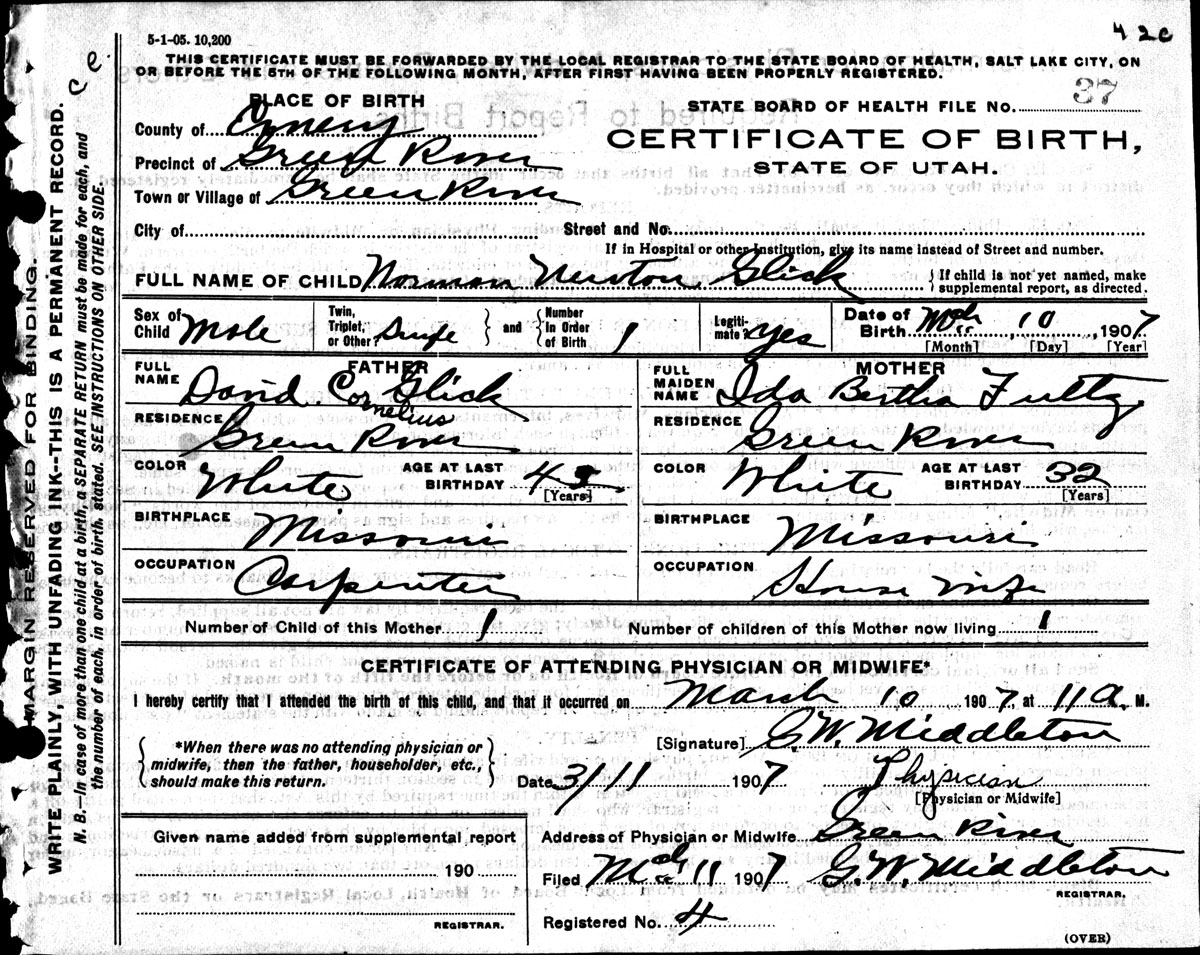 42c
5-1-05. 10,200
THIS CERTIFICATE MUST BE FORWARDED BY THE LOCAL REGISTRAR TO THE STATE BOARD OF HEALTH, SALT LAKE CITY, ON
OR BEFORE THE 5TH OF THE FOLLOWING MONTH, AFTER FIRST HAVING BEEN PROPERLY REGISTERED.
PLACE OF BIRTH
STATE BOARD OF HEALTH FILE NO. 37
County of Emery
CERTIFICATE OF BIRTH,
Precinct of Green River
STATE OF UTAH.
Town or Village of Green River
City of Street and No.
If in Hospital or other Institution, give its name instead of Street and number.
FULL NAME OF CHILD Norman Newton Glick { If child is not yet named, make supplemental report, as directed.
Sex of Child Male Twin, Triplet, or Other? Single } and { Number In Order of Birth 1 Legitimate? Yes Date of Birth Mch 10, 1907
[Month] [Day] [Year]
FATHER
FULL NAME David Cornelius Glick
RESIDENCE Green River
COLOR White AGE AT LAST BIRTHDAY 43
[Years]
BIRTHPLACE Missouri
OCCUPATION Carpenter
MOTHER
FULL MAIDEN NAME Ida Bertha Fultz
RESIDENCE Green River
COLOR White AGE AT LAST BIRTHDAY 32
[Years]
BIRTHPLACE Missouri
OCCUPATION House Wife
Number of Child of this Mother 1 Number of children of this Mother now living 1
CERTIFICATE OF ATTENDING PHYSICIAN OR MIDWIFE*
I hereby certify that I attended the birth of this child, and that it occurred on March 10 1907, at 11 a. M.
{ *When there was no attending physician or midwife, then the father, householder, etc., should make this return. }
[Signature] G. W. Middleton
Date 3/11 1907 Physician
[Physician or Midwife]
Given name added from supplemental report
190
REGISTRAR.
Address of Physician or Midwife Green River
Filed Mch 11 1907 G. W. Middleton
REGISTRAR.
Registered No. 4
(OVER)
MARGIN RESERVED FOR BINDING.
WRITE PLAINLY, WITH UNFADING INK--THIS IS A PERMANENT RECORD.
N. B.—In case of more than one child at a birth, a SEPARATE RETURN must be made for each, and
the number of each, in order of birth, stated. SEE INSTRUCTIONS ON OTHER SIDE.